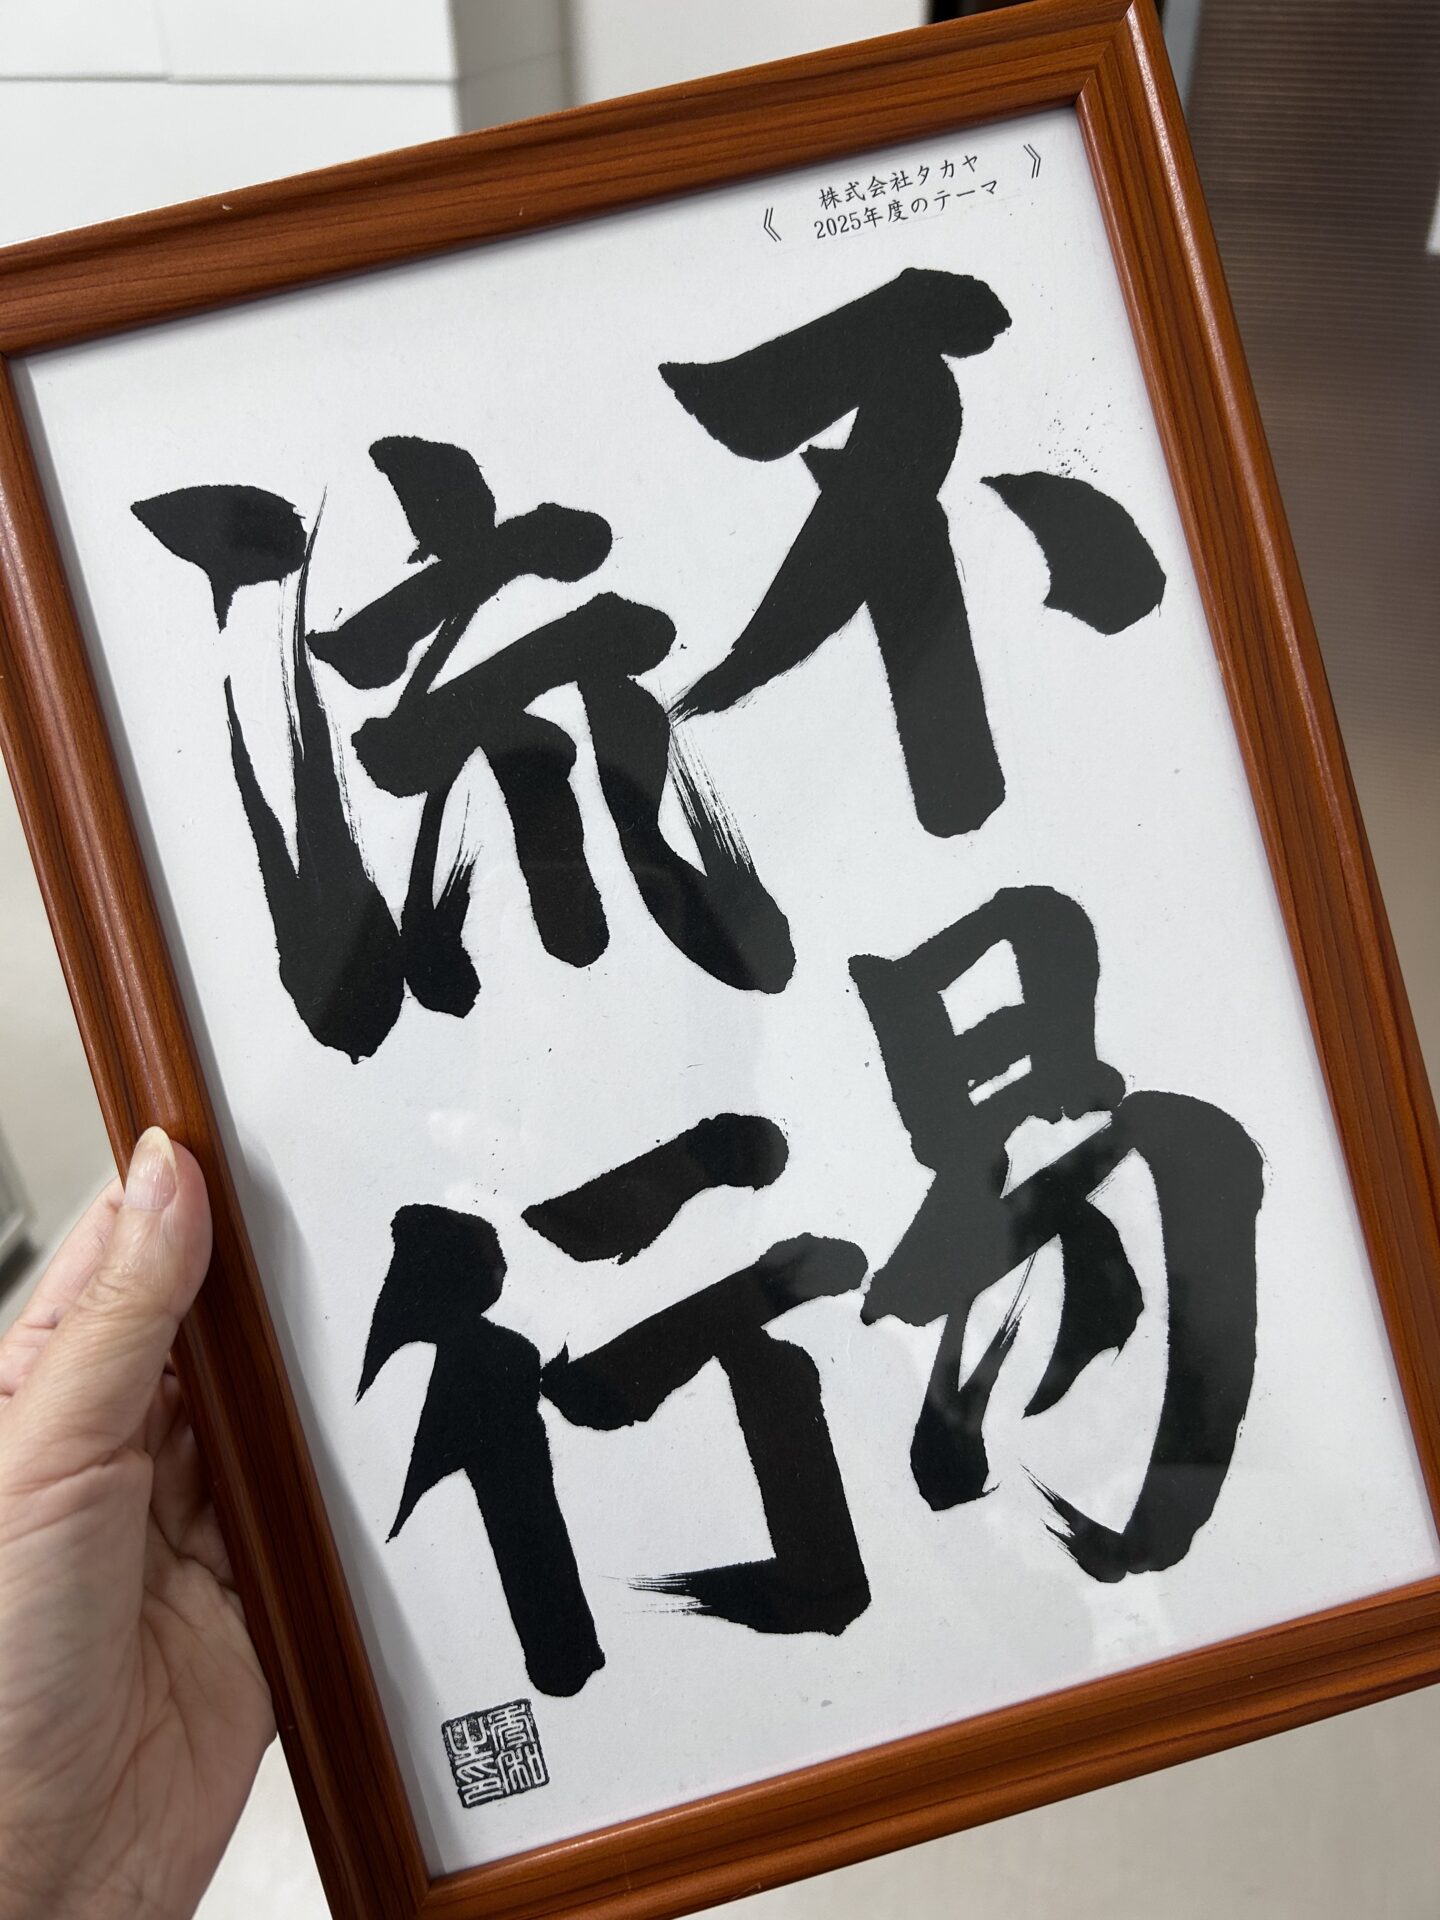 《 株式会社タカヤ 》
2025年度のテーマ
不易
流行